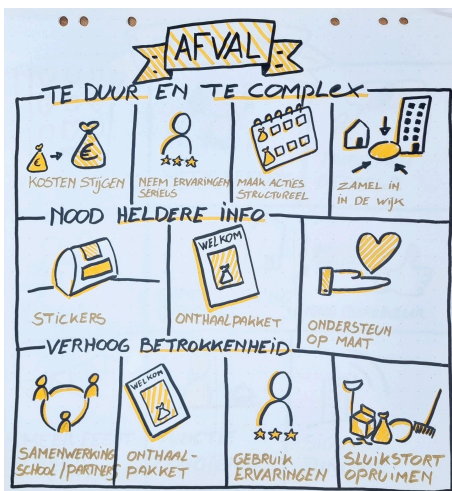 AFVAL
TE DUUR EN TE COMPLEX
KOSTEN STIJGEN
NEEM ERVARINGEN
SERIEUS
MAAK ACTIES
STRUCTUREEL
ZAMEL IN
IN DE WIJK
NOOD HELDERE INFO
STICKERS
WELKOM
ONTHAALPAKKET
ONDERSTEUN
OP MAAT
VERHOOG BETROKKENHEID
SAMENWERKING
SCHOOL/PARTNERS
WELKOM
ONTHAAL-
PAKKET
GEBRUIK
ERVARINGEN
SLUIKSTORT
OPRUIMEN